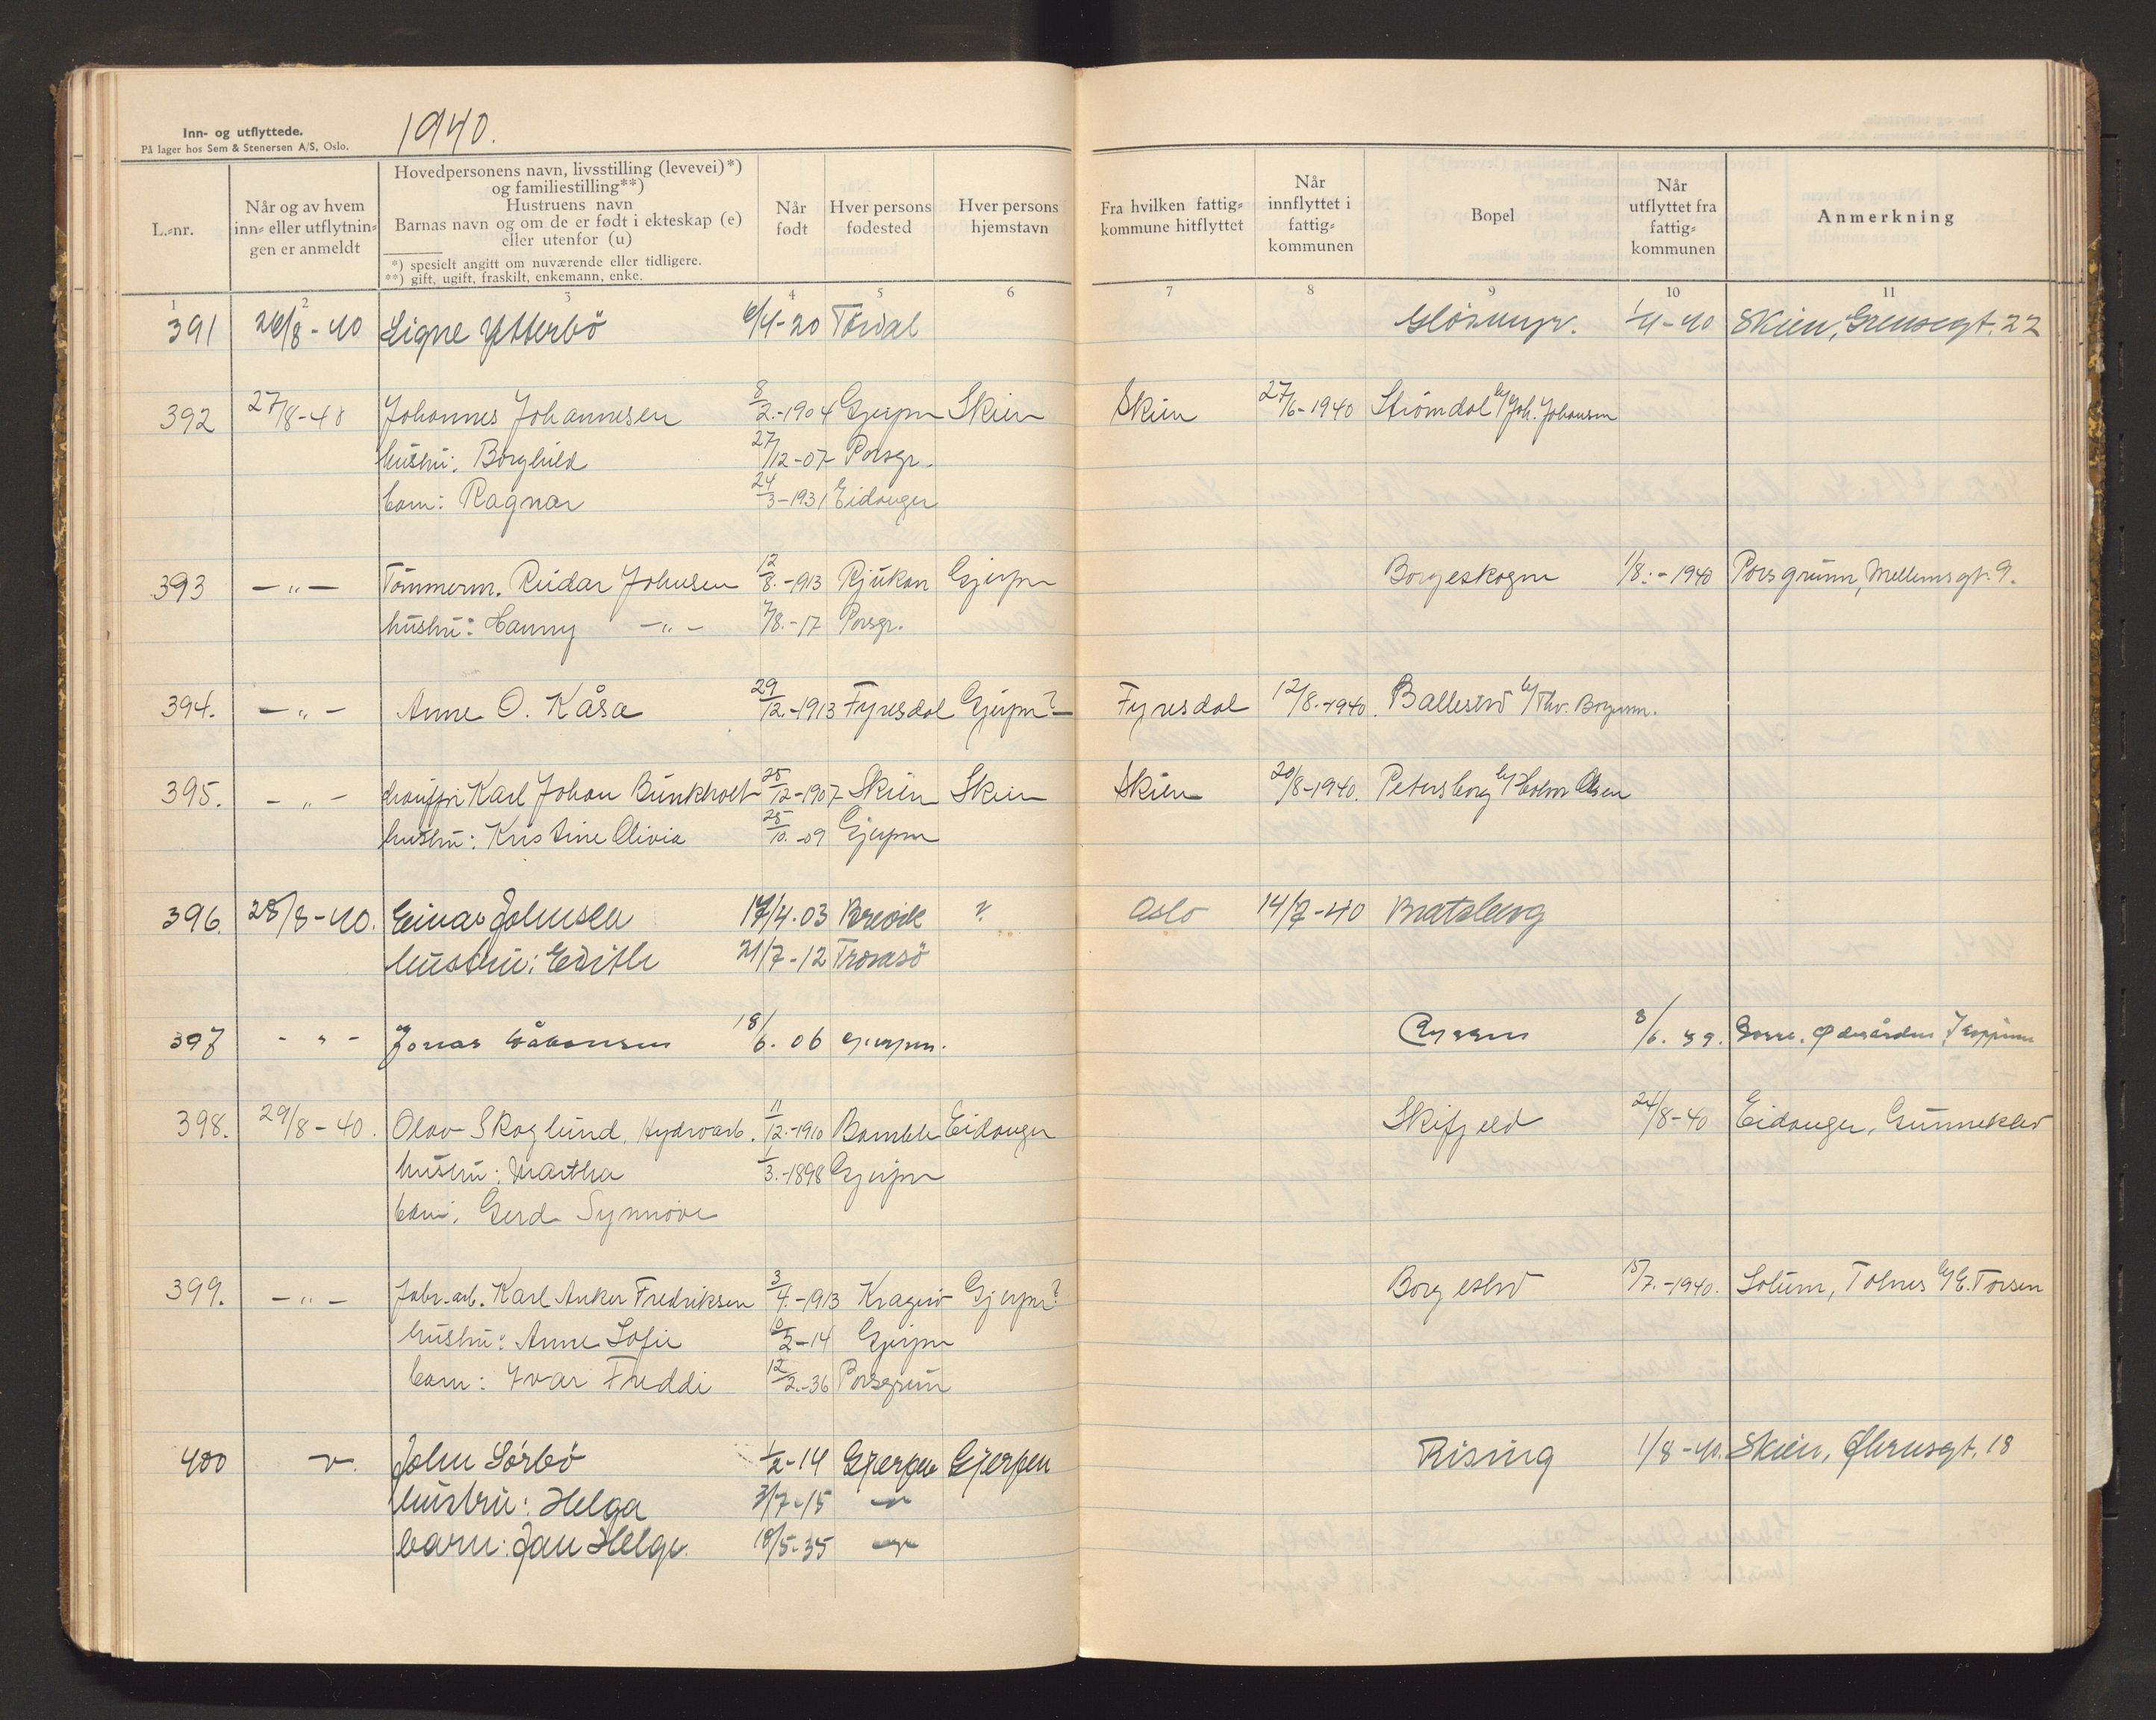 Inn- og utflyttede.
På lager hos Sem & Stenersen A/S, Oslo.
1940.
L.-nr.
Når og av hvem inn- eller utflytningen er anmeldt
Hovedpersonens navn, livsstilling (levevei)*) og familiestilling**)
Hustruens navn
Barnas navn og om de er født i ekteskap (e) eller utenfor (u)
*) spesielt angitt om nuværende eller tidligere.
**) gift, ugift, fraskilt, enkemann, enke.
Når født
Hver persons fødested
Hver persons hjemstavn
Fra hvilken fattigkommune hitflyttet
Når innflyttet i fattigkommunen
Bopel
Når utflyttet fra fattigkommunen
Anmerkning
1 2 3 4 5 6 7 8 9 10 11
391 26/8-40 Signe Ytterbö 6/4-20 Tördal 1/4-40 Skien, Grensegt. 22
392 27/8-40 Johannes Johannesen 8/2.-1904 Gjerpen Skien Skien 27/6-1940 Strömdal b/ Joh. Johansen
hustru: Borghild 27/12-07 Porsgr.
barn: Ragnar 24/3-1931 Eidanger
393 -"- Tömmerm. Reidar Johnsen 12/8.-1913 Rjukan Gjerpen Borgeskogen 1/8.-1940 Porsgrunn, Mellemsgt. 9.
hustru: Hanny -"- 7/8.-17 Porsgr.
394. -"- Anne O. Kåsa 29/12.-1913 Fyresdal Gjerpen? Fyresdal 12/8.-1940. Ballestad b/ Thv. Borgersen.
395. -"- Karl Johan Bunkholt 25/12-1907 Skien Skien Skien 20/8-1940. Petersborg b/ Halvor Olsen
hustru: Kristine Olivia 25/10.-09 Gjerpen
396. 28/8-40. Einar Johnsen 17/4.03 Brevik ? Oslo 14/7-40 Bratsberg
hustru: Edith 21/7-12 Tromsö
397 -"- Jonas Håkonsen 18/6.06 Gjerpen. 3/6.39. Borre.
398. 29/8-40. Olav Skoglund, Hydroarb. 11/12.-1910 Bamble Eidanger Skifjeld 24/8-40 Eidanger, Gunneklev
hustru: Martha 1/3.-1898 Gjerpen
barn: Gerd Synnöve
399. -"- Fabr.arb. Karl Anker Fredriksen 3/4.-1913 Kragerö Gjerpen? Borgestad 15/7.-1940. Solum, Tolnes b/ E. Torsen
hustru: Anne Sofie 6/2-14 Gjerpen
barn: Ivar Freddi 12/2.-36 Porsgrunn
400 John Sörbö 1/2-14 Gjerpen Gjerpen Rising 1/8-40. Skien, 18
hustru: Helga 3/7-15
barn: Jan Helge. 18/5-35